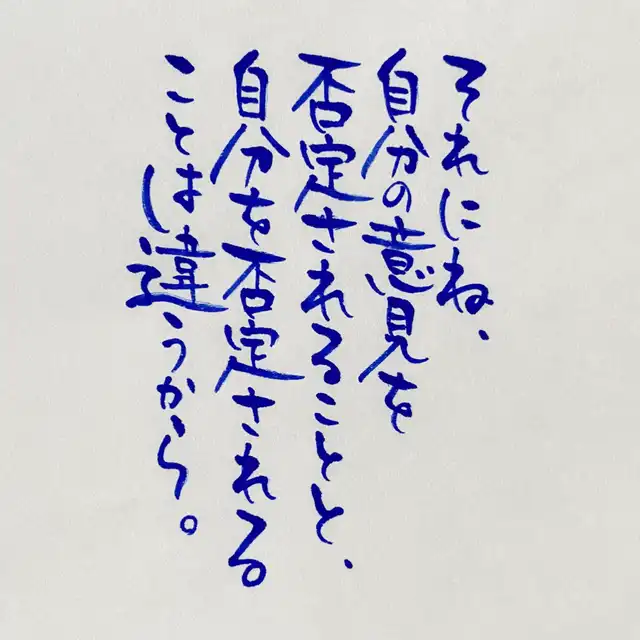 それにね、
自分の意見を
否定されることと、
自分を否定される
ことは違うから。